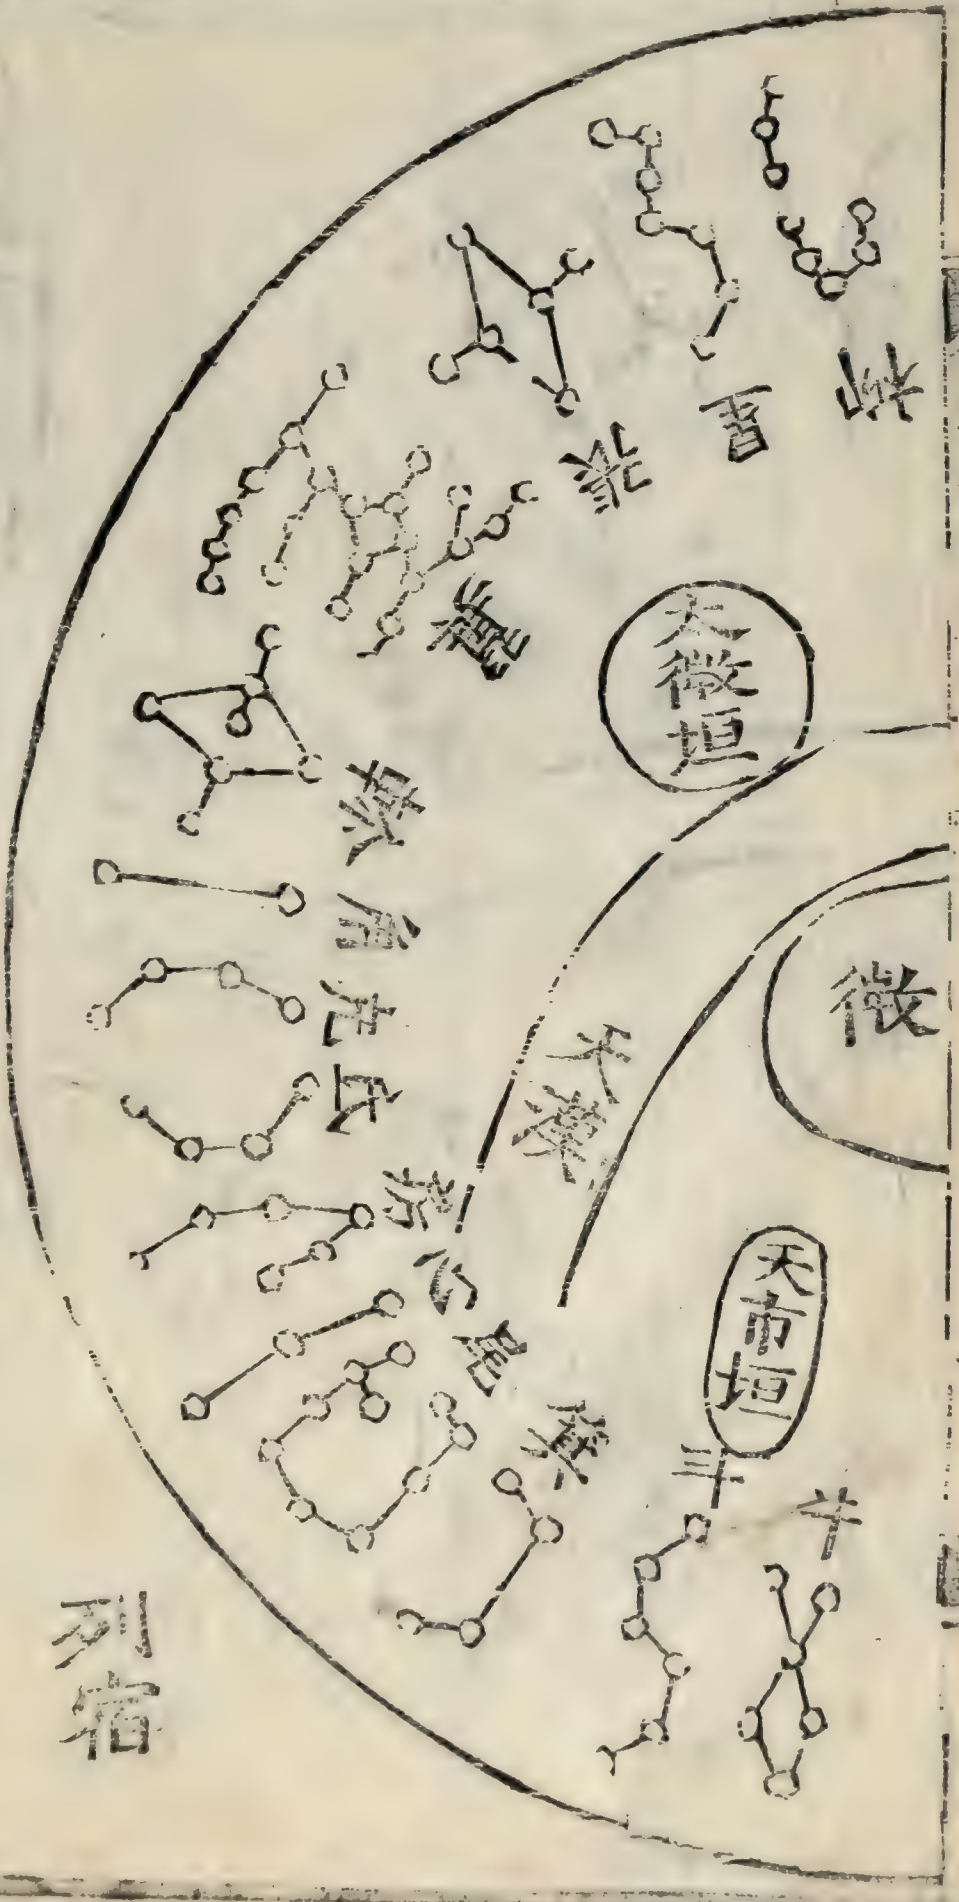 柳
星
張
翼
軫
角
亢
氐
房
心
尾
箕
斗
牛
太微垣
天漢
微
天市垣
列宿